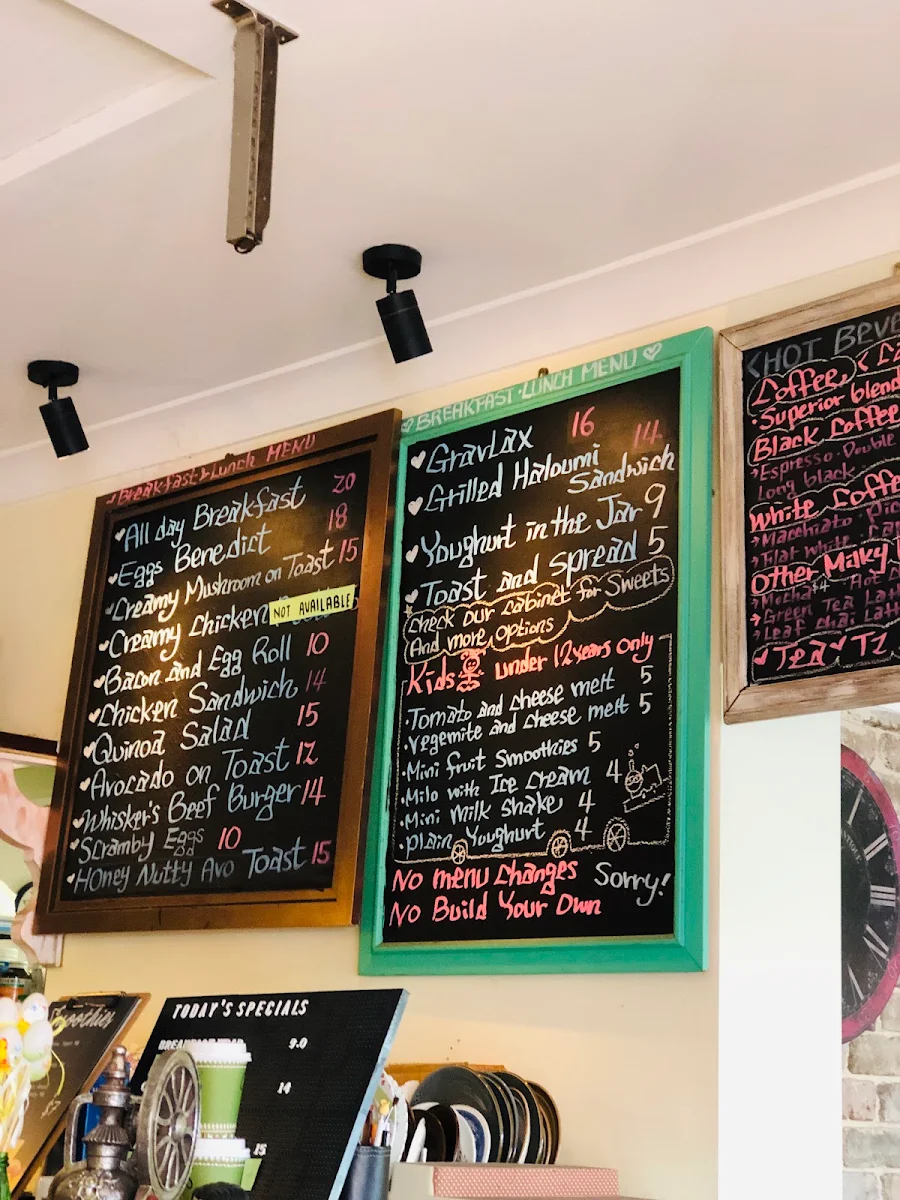 Breakfast & Lunch MENU
All day Breakfast 20
Eggs Benedict 18
Creamy Mushroom on Toast 15
Creamy Chicken
NOT AVAILABLE
Bacon and Egg Roll 10
Chicken Sandwich 14
Quinoa Salad 15
Avocado on Toast 12
Whisker's Beef Burger 14
Scramby Eggs 10
Honey Nutty Avo Toast 15
BREAKFAST·LUNCH MENU
Gravlax 16
Grilled Haloumi 14
Sandwich
Youghurt in the Jar 9
Toast and Spread 5
Check our cabinet for Sweets
And more options
Kids under 12 years Only
Tomato and cheese melt 5
Vegemite and cheese melt 5
Mini fruit Smoothies 5
Milo with Ice cream 4
Mini Milk Shake 4
Plain Youghurt 4
No menu changes Sorry!
No Build Your Own
HOT
Coffee
Superior blend
Black Coffee
Espresso Double
Long black
White Coffee
Macchiato
Flat white
Other Milky
Mocha Hot
Green Tea
Leaf chai
Tea T2
TODAY'S SPECIALS
9.0
14
15
Smoothies